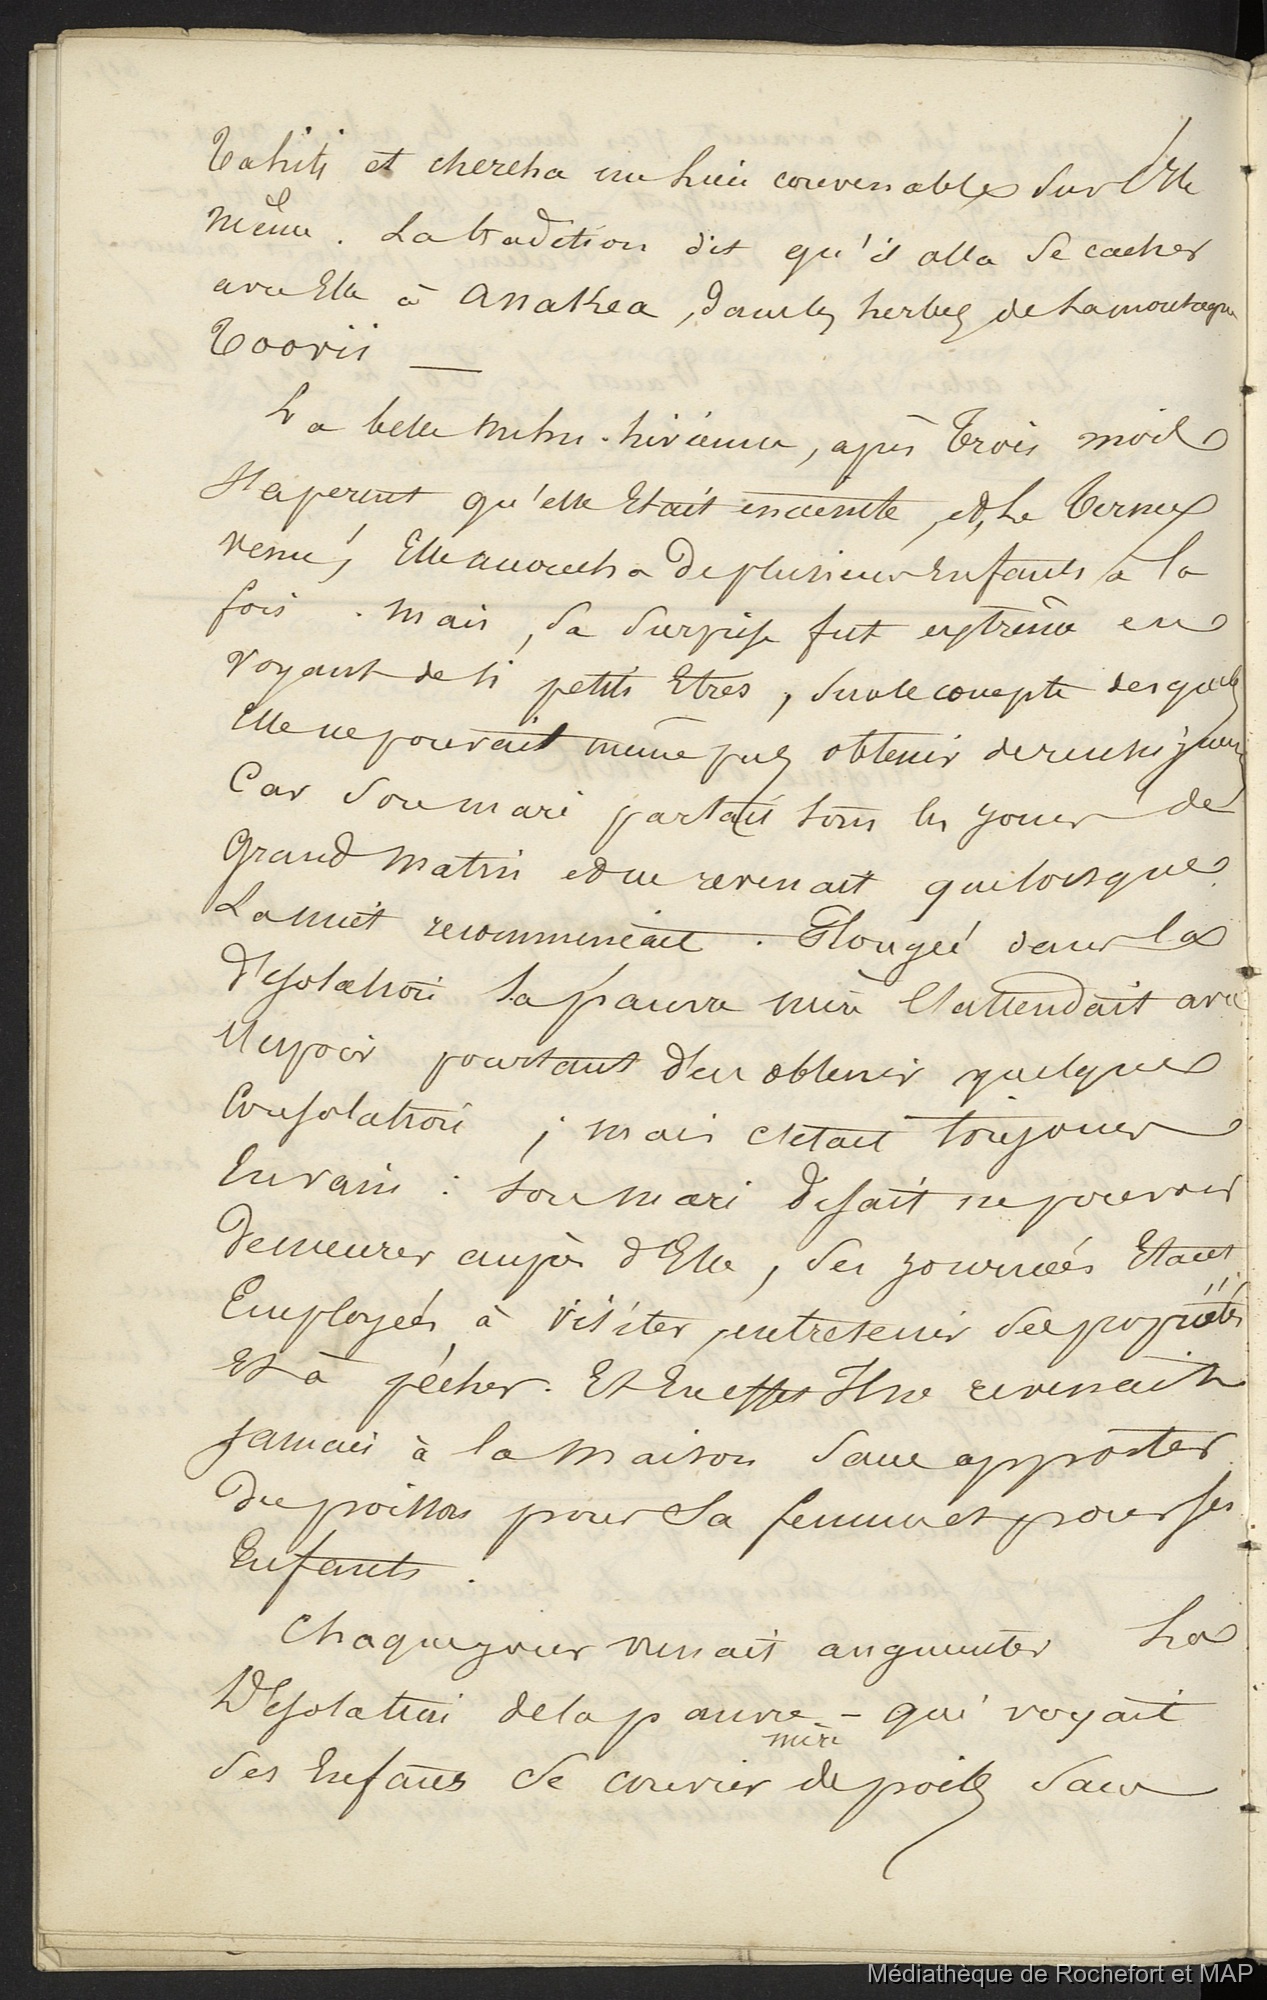 Tahiti et chercha un lieu convenable sur l'Ile
même. La tradition dit qu'il alla se cacher
avec Elle à Anakea, dans les herbes de la montagne
Toovii —
La belle hiréume, après Trois mois
s'aperçut qu'elle Etait enceinte, et, le Terme
venu, Elle accoucha de plusieurs Enfants à la
fois. Mais, sa surprise fut extrême en
voyant de si petits Etres, sur le compte desquels
Elle ne pouvait même pas obtenir de renseignem
Car son mari partait tous les jours de
grand matin et ne revenait que lorsque
La nuit recommençait. Plongée dans la
Désolation la pauvre mère l'attendait avec
l'Espoir pourtant d'en obtenir quelque
Consolation ; mais c'était toujours
En vain : son mari disait ne pouvoir
Demeurer auprès d'Elle, ses journées Etant
Employées à visiter, entretenir ses propriétés
Et à pêcher. Et En effet Il ne revenait
jamais à la maison sans apporter
Du poisson pour sa femme et pour ses
Enfants.
Chaque jour venait augmenter La
Désolation de la pauvre - qui voyait
mère
ses Enfans se couvrir de poils sans
Médiathèque de Rochefort et MAP